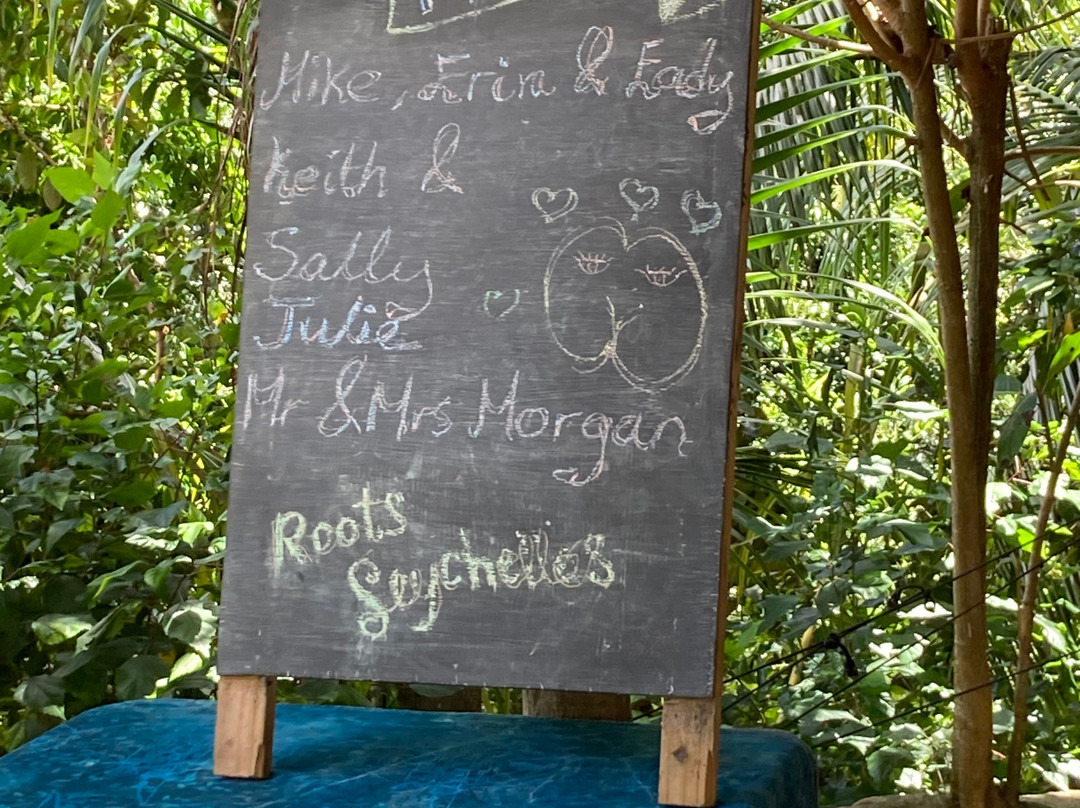 Mike, Erin & Eady
Keith &
Sally
Julie
Mr & Mrs Morgan
Roots
Seychelles